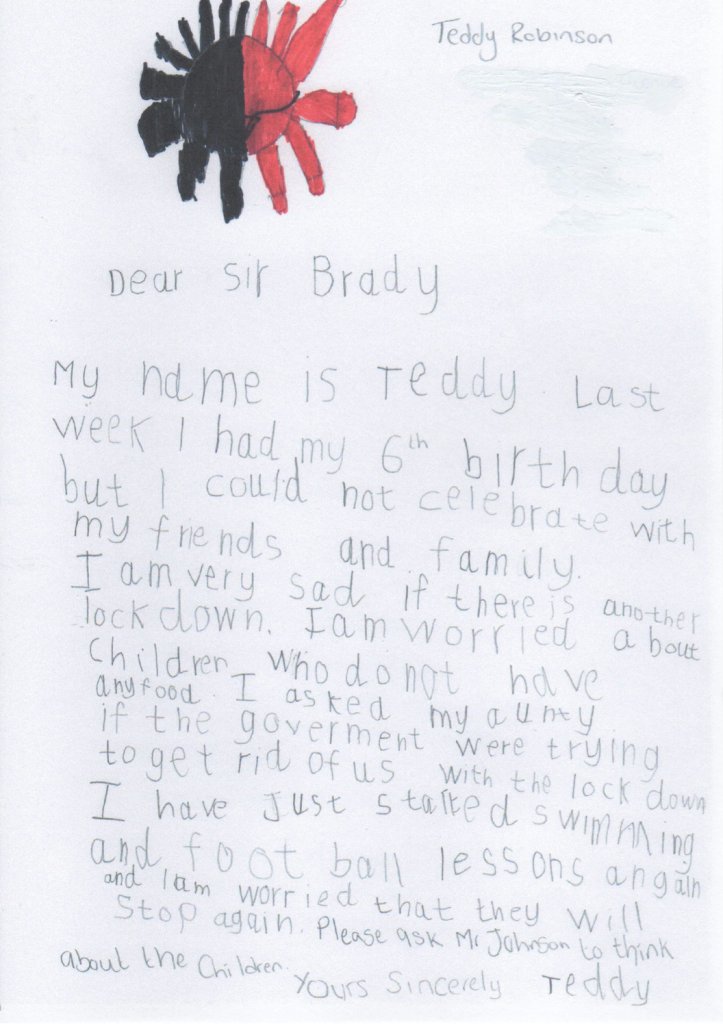 Teddy Robinson
Dear Sir Brady
My name is Teddy. Last
week I had my 6th birthday
but I could not celebrate with
my friends and family.
I am very sad if there is another
lockdown. I am worried about
Children who do not have
any food. I asked my aunty
if the goverment were trying
to get rid of us with the lock down
I have just started swimming
and foot ball lessons angain
and I am worried that they will
Stop again. Please ask Mr Johnson to think
about the Children.
Yours Sincerely Teddy